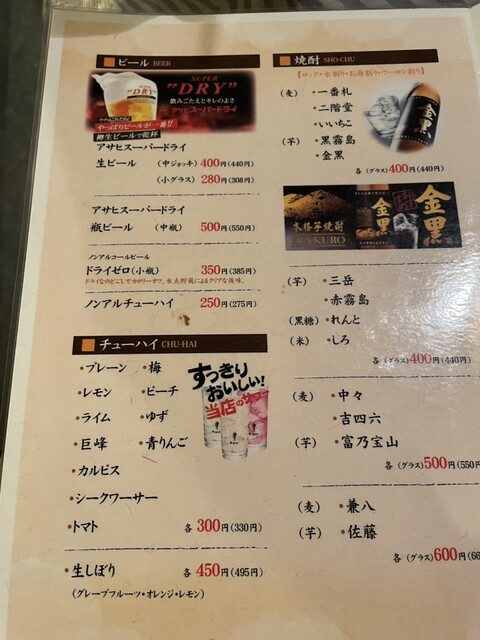 ビール BEER
SUPER
"DRY"
飲みごたえとキレのよさ
アサヒスーパードライ
やっぱりビールが一番!!
樽生ビールで乾杯
アサヒスーパードライ
生ビール (中ジョッキ) 400円(440円)
(小グラス) 280円(308円)
アサヒスーパードライ
瓶ビール (中瓶) 500円(550円)
ノンアルコールビール
ドライゼロ(小瓶) 350円(385円)
ドライなのどごしでカロリーオフ。氷点貯蔵によるクリアな後味。
ノンアルチューハイ 250円(275円)
チューハイ CHU-HAI
・プレーン ・梅
・レモン ・ピーチ
・ライム ・ゆず
・巨峰 ・青りんご
・カルピス
・シークワーサー
・トマト 各 300円(330円)
すっきり
おいしい!
当店のサワー
・生しぼり 各 450円(495円)
(グレープフルーツ・オレンジ・レモン)
焼酎 SHO-CHU
【ロック・水割り・お湯割り・ウーロン割り】
(麦) ・一番札
・二階堂
・いいちこ
(芋) ・黒霧島
・金黒
各(グラス)400円(440円)
金黒
本格芋焼酎
金黒
金黒
(芋) ・三岳
・赤霧島
(黒糖) ・れんと
(米) ・しろ
各(グラス)400円(440円)
(麦) ・中々
・吉四六
(芋) ・富乃宝山
各(グラス)500円(550円
(麦) ・兼八
(芋) ・佐藤
各(グラス)600円(66